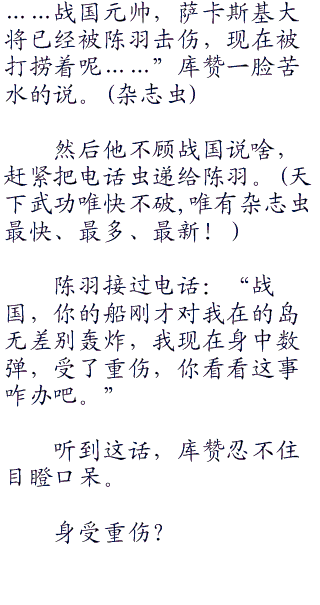 ……战国元帅，萨卡斯基大
将已经被陈羽击伤，现在被
打捞着呢……”库赞一脸苦
水的说。(杂志虫)
然后他不顾战国说啥，
赶紧把电话虫递给陈羽。(天
下武功唯快不破,唯有杂志虫
最快、最多、最新！)
陈羽接过电话：“战
国，你的船刚才对我在的岛
无差别轰炸，我现在身中数
弹，受了重伤，你看看这事
咋办吧。”
听到这话，库赞忍不住
目瞪口呆。
身受重伤？